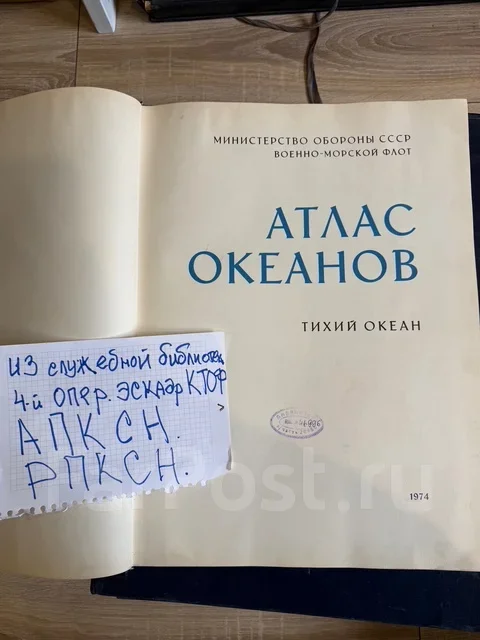 МИНИСТЕРСТВО ОБОРОНЫ СССР
ВОЕННО-МОРСКОЙ ФЛОТ
АТЛАС
ОКЕАНОВ
ТИХИЙ ОКЕАН
ИЗ служебной библиотек
4-й ОПЕР. ЭСКАДР КТОФ
АПКСН.
РПКСН.
1974
Post.ru